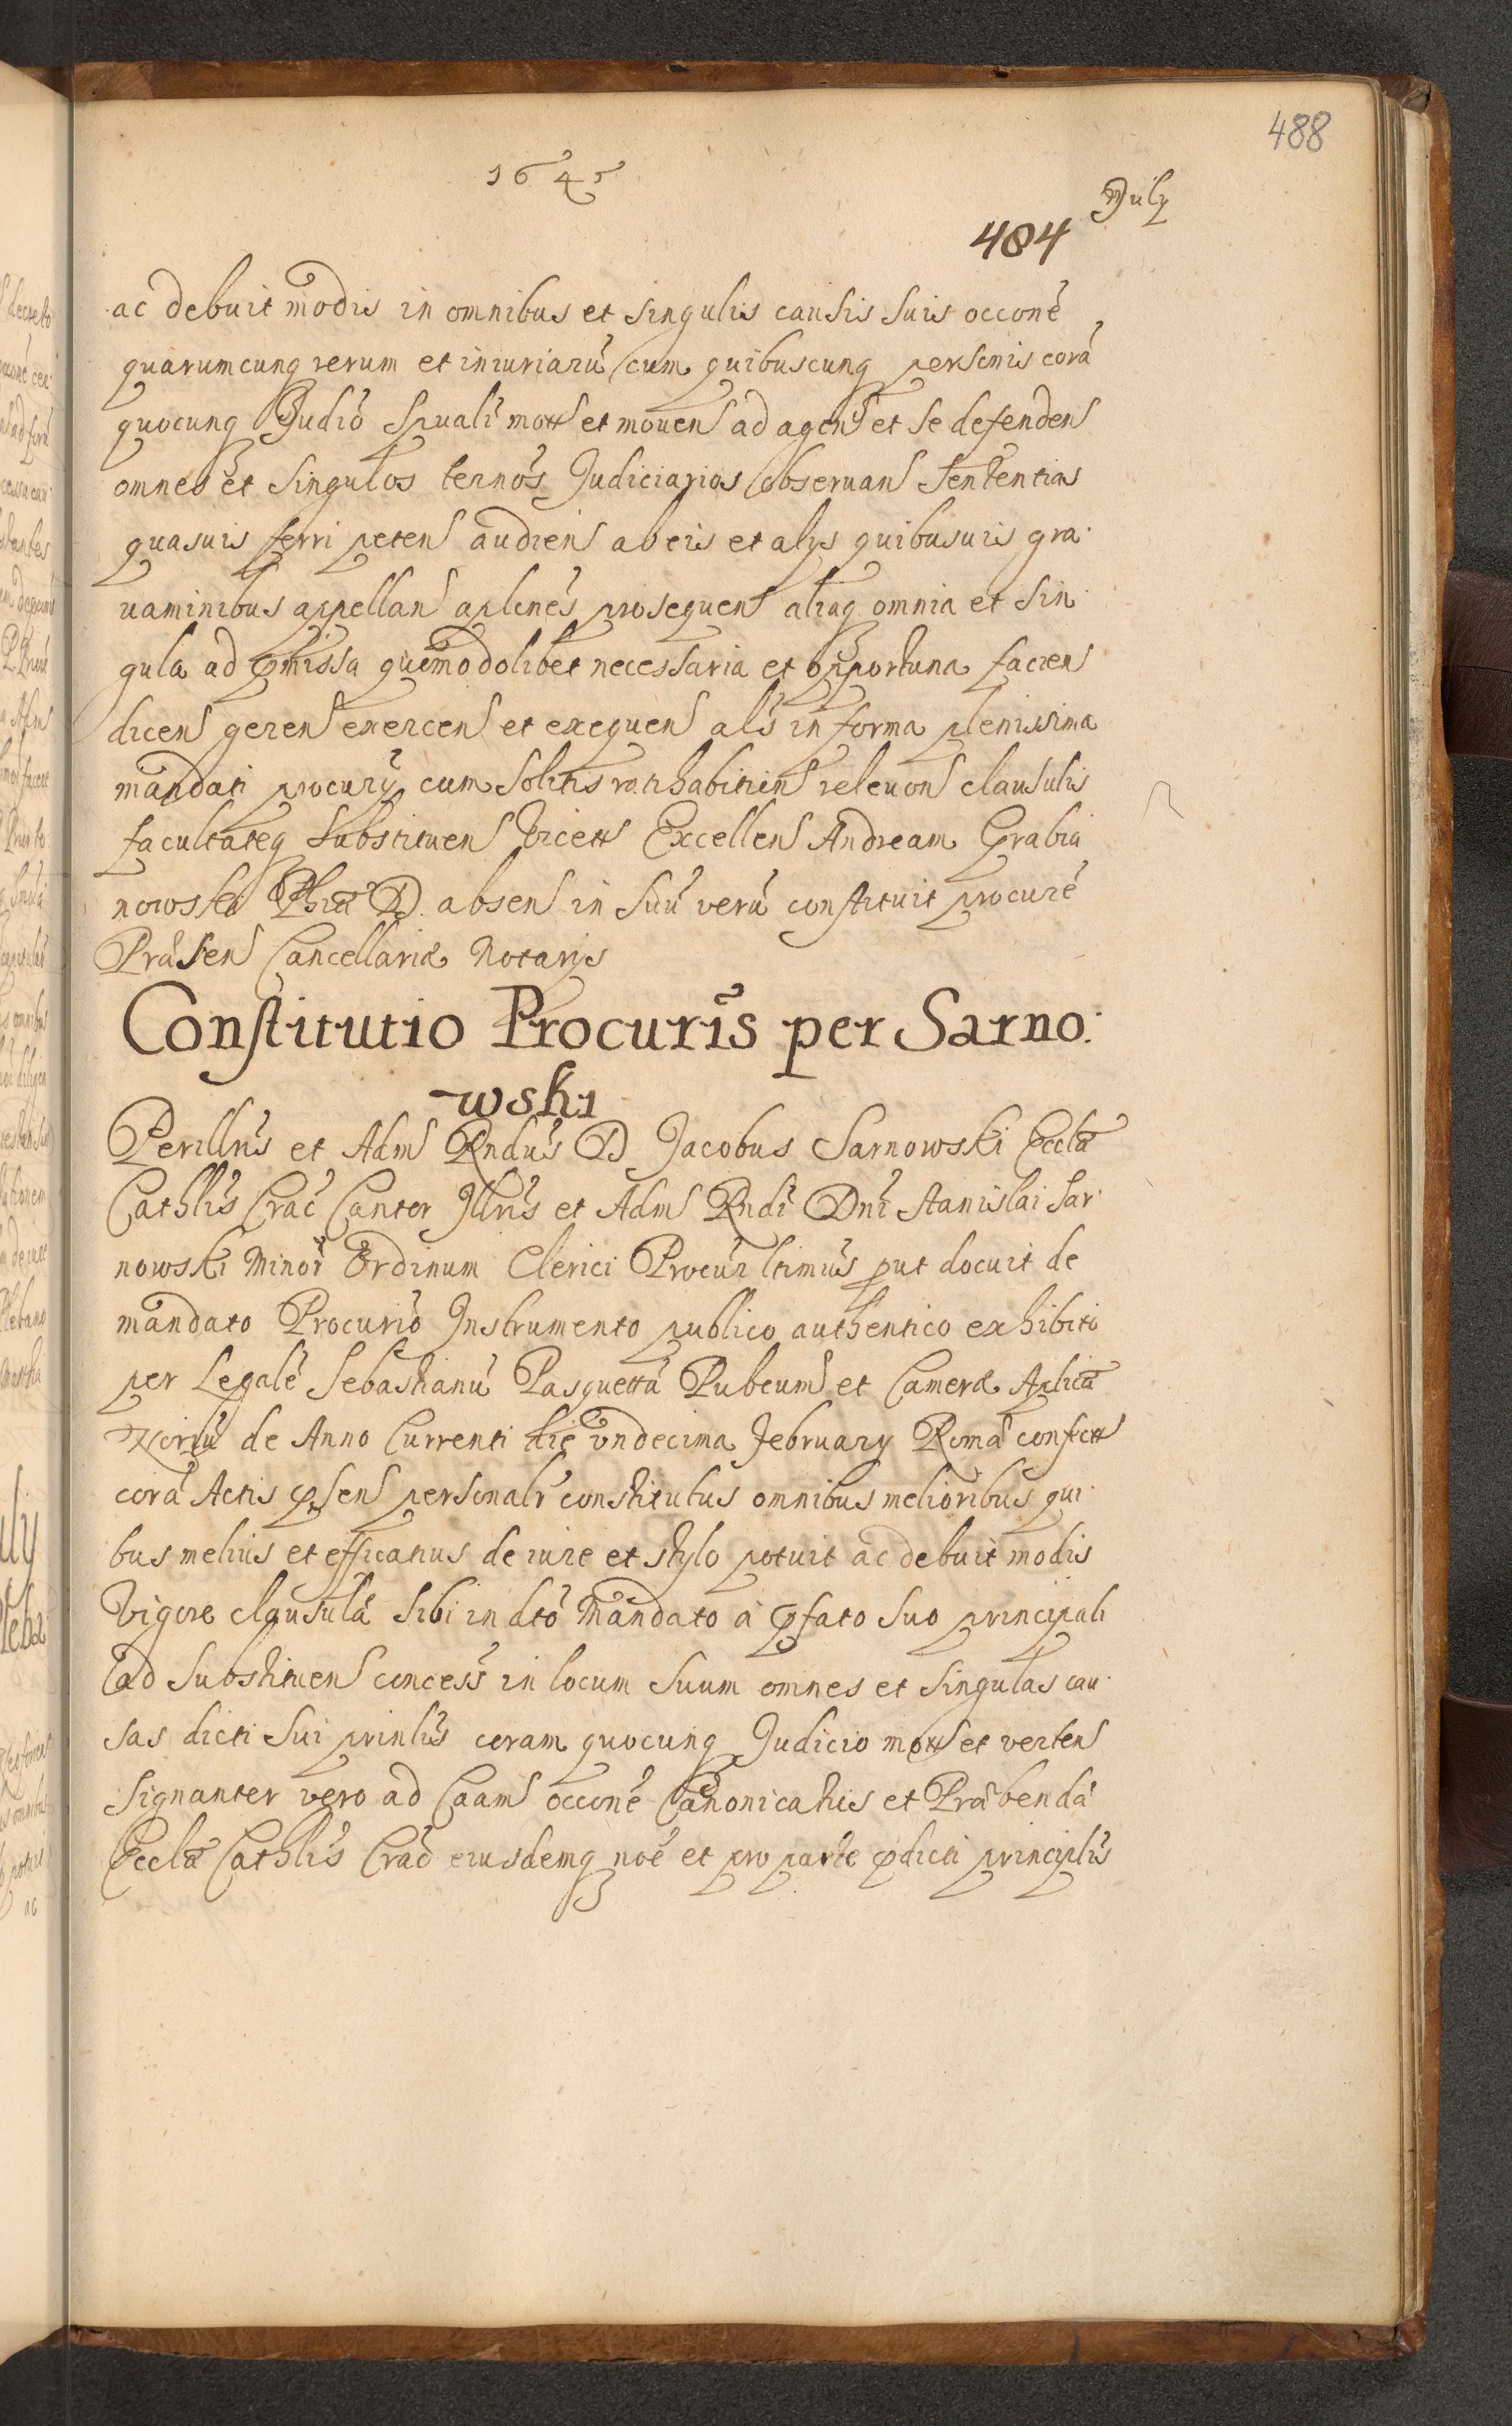 488
1645
July
484
ac debuit modis in omnibus et singulis causis suis occonē
quarumcunq rerum et iniuriarū cum quibuscunq personis corā
quocunq Judiō spualī mott et mouen ad agen et se defenden
omnes et singulos ternōs Judiciarios obseruan sententias
quasuis ferri peten audien ab eis et alys quibusuis gra-
uaminibus appellan aplnēs prosequen aliaq omnia et sin
gula ad pmissa quomodolibet necessaria et opportuna facien
dicen geren exercen et exequen als in forma plenissima
mandati procury cum solitis ratihabition releuon clausulis
facultateq substituen Excellen Andream Grabia
nowski Phiæ D. absen in suū verū constituit procurē
Præsen Cancellariæ Notarijs
Constitutio Procuris per Sarno:
-wski
Perillris et Adm Rndus D Jacobus Sarnowski Eccłæ
Cathlis Crac Cantor Illris et Adm Rndi Dni Stanislai Sar
nowski Minor Ordinum Clerici Procur ltimus put docuit de
mandato Procuriō Instrumento publico authentico exhibito
per Legalē Sebastianū Pasquettū Rubeum et Cameræ Aplicæ
Noriū de Anno Currenti die vndecima February Romæ confectt
corā Actis psen personalr constitutus omnibus melioribus qui-
bus melius et efficatius de iure et stylo potuit ac debuit modis
Vigore clausulæ sibi in dtō Mandato a pfato suo principali
ad substituen concess in locum suum omnes et singulas cau-
sas dicti sui prinlis coram quocunq Judicio mott et verten
signanter vero ad Caam occonē Canonicatus et Præbendæ
Eccłæ Cathlis Crac eiusdemq noē et pro parte pdicti principlis